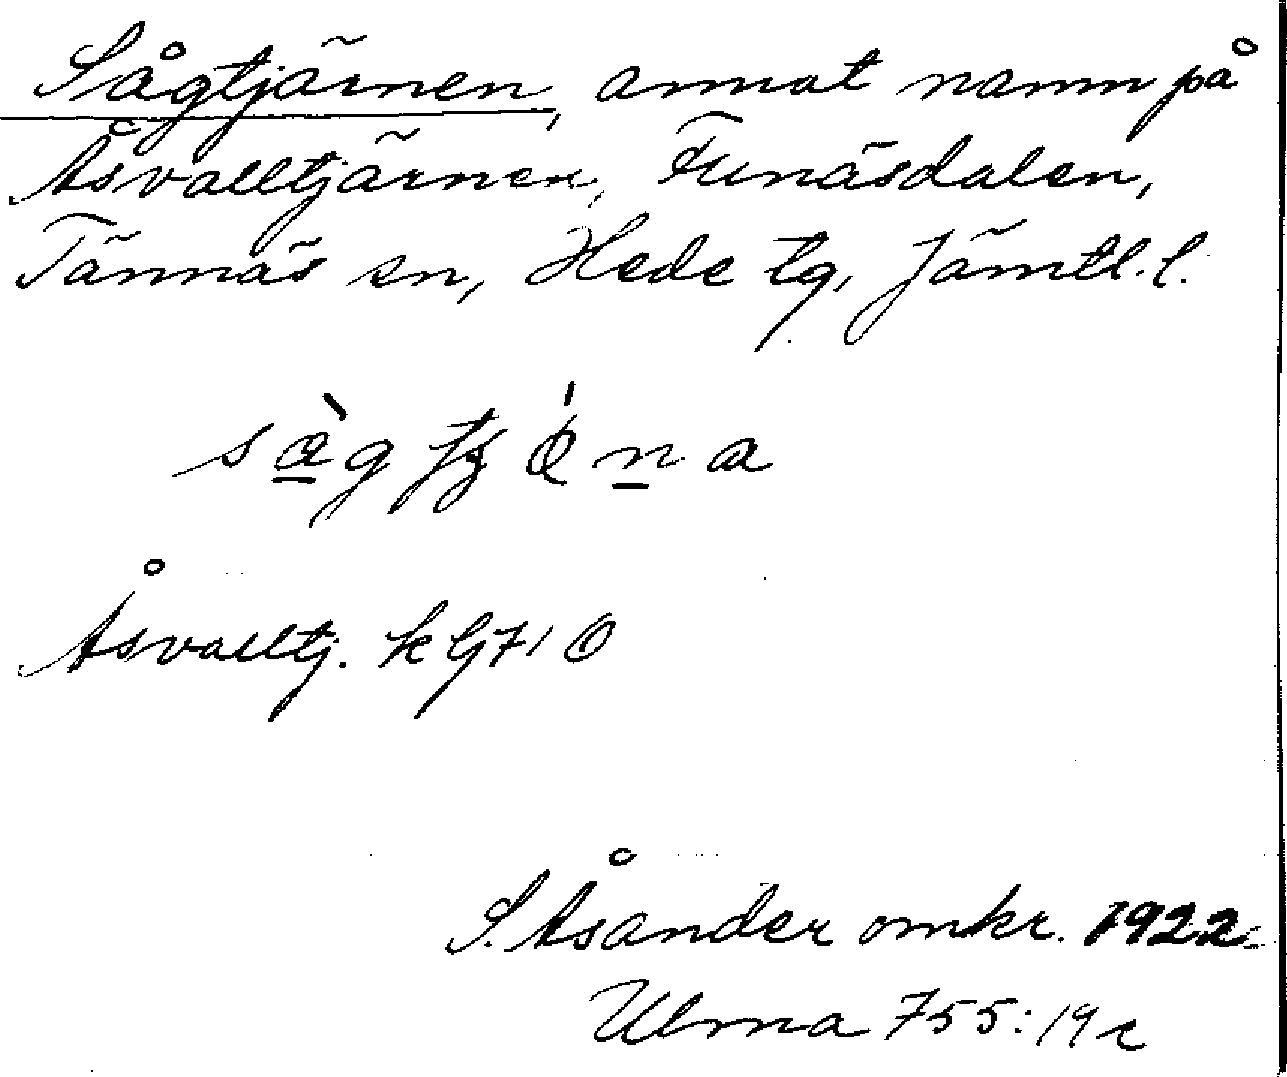 Sågtjärnen, annat namn på
Åsvalltjärnen, Funäsdalen,
Tännäs sn, Hede tg, Jämtl. l.
Åsvalltj.
S. Åsander omkr. 1922
Ulma 755:19c